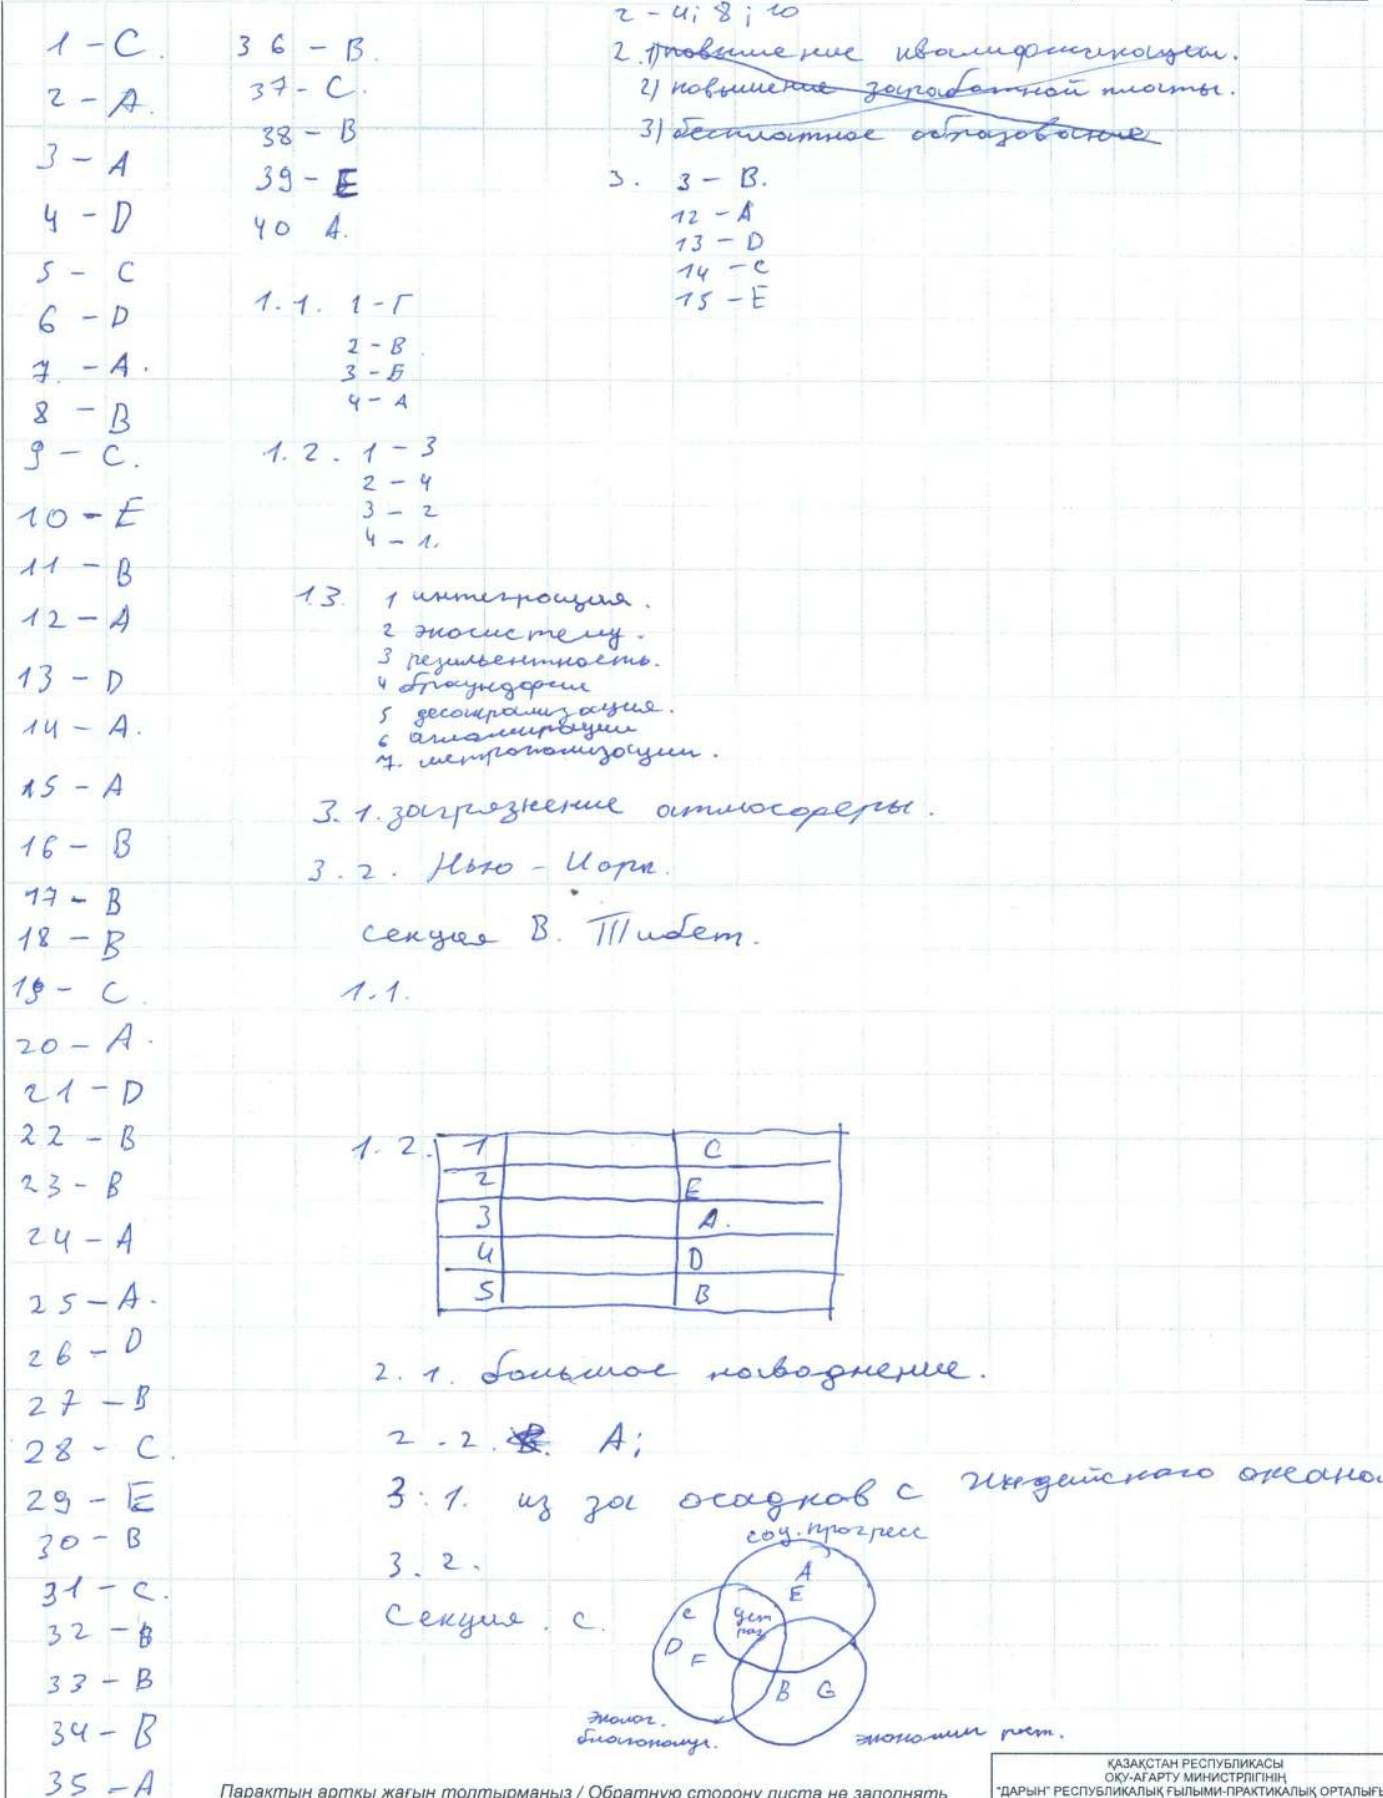 1 - C.
2 - A.
3 - A
4 - D
5 - C
6 - D
7. - A.
8 - B
9 - C.
10 - E
11 - B
12 - A
13 - D
14 - A.
15 - A
16 - B
17 - B
18 - B
19 - C.
20 - A.
21 - D
22 - B
23 - B
24 - A
25 - A.
26 - D
27 - B
28 - C.
29 - E
30 - B
31 - C.
32 - B
33 - B
34 - B
35 - A
36 - B.
37 - C.
38 - B
39 - E
40 A.
1.1. 1 - Г
2 - В
3 - Б
4 - А
1.2. 1 - 3
2 - 4
3 - 2
4 - 1.
1.3. 1 интеграция.
2 экосистему.
3 резильентность.
4 браундфрил
5 десокрализация.
6 агломерации
7. метрополизации.
3.1. загрязнение атмосферы.
3.2. Нью-Йорк.
секция В. Тибет.
1.1.
1.2. 1 C
2 E
3 A.
4 D
5 B
2.1. большое наводнение.
2.2. A;
3.1. из за осадков с Индийского океана.
3.2.
Секция. С.
соц. прогресс
A
E
C
D F
B G
эколог.
благополуч.
экономич рост.
2 - 4; 8; 10
2. 1) повышение квалификации.
2) повышение заработной платы.
3) бесплатное образование
3. 3 - B.
12 - A
13 - D
14 - C
15 - E
Парақтың артқы жағын толтырмаңыз / Обратную сторону листа не заполнять
ҚАЗАҚСТАН РЕСПУБЛИКАСЫ
ОҚУ-АҒАРТУ МИНИСТРЛІГІНІҢ
"ДАРЫН" РЕСПУБЛИКАЛЫҚ ҒЫЛЫМИ-ПРАКТИКАЛЫҚ ОРТАЛЫҒЫ